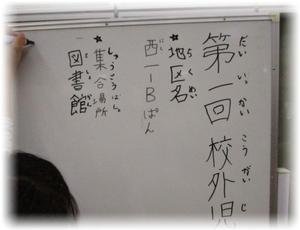 第一回校外児
だいいっかいこうがいじ
★地区名
ちくめい
西一Bぱん
★集合場所
しゅうごうばしょ
図書館
としょかん